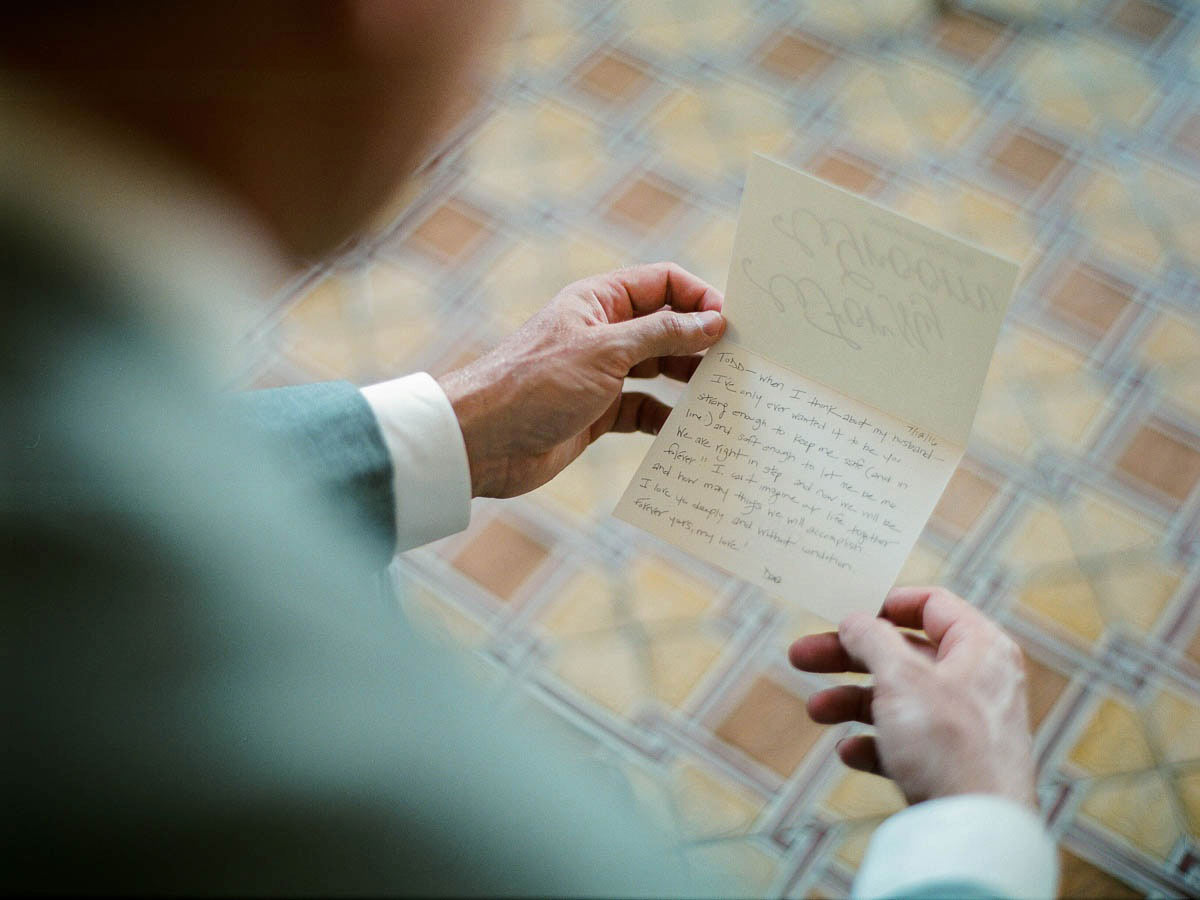 7/18/16
TODD— When I think about my husband—
I've only ever wanted it to be you—
strong enough to keep me safe (and in
line!) and soft enough to let me be me
We are right in step and now we will be
forever!! I can't imagine our life together
and how many things we will accomplish
I love you deeply and without condition.
Forever yours, my love!